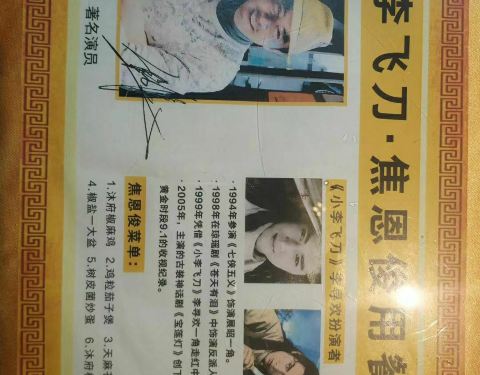 李飞刀·焦恩俊用餐
著名演员
《小李飞刀》李寻欢扮演者
·1994年参演《七侠五义》饰演展昭一角。
·1998年在琼瑶剧《苍天有泪》中饰演反派人
·1999年凭借《小李飞刀》李寻欢一角走红中
·2005年，主演的古装神话剧《宝莲灯》创下
黄金时段9.1的收视纪录。
焦恩俊菜单：
1.沐府椒麻鸡 2.鸡粒茄子煲 3.天麻
4.椒盐一大盆 5.树皮菌炒蛋 6.沐府